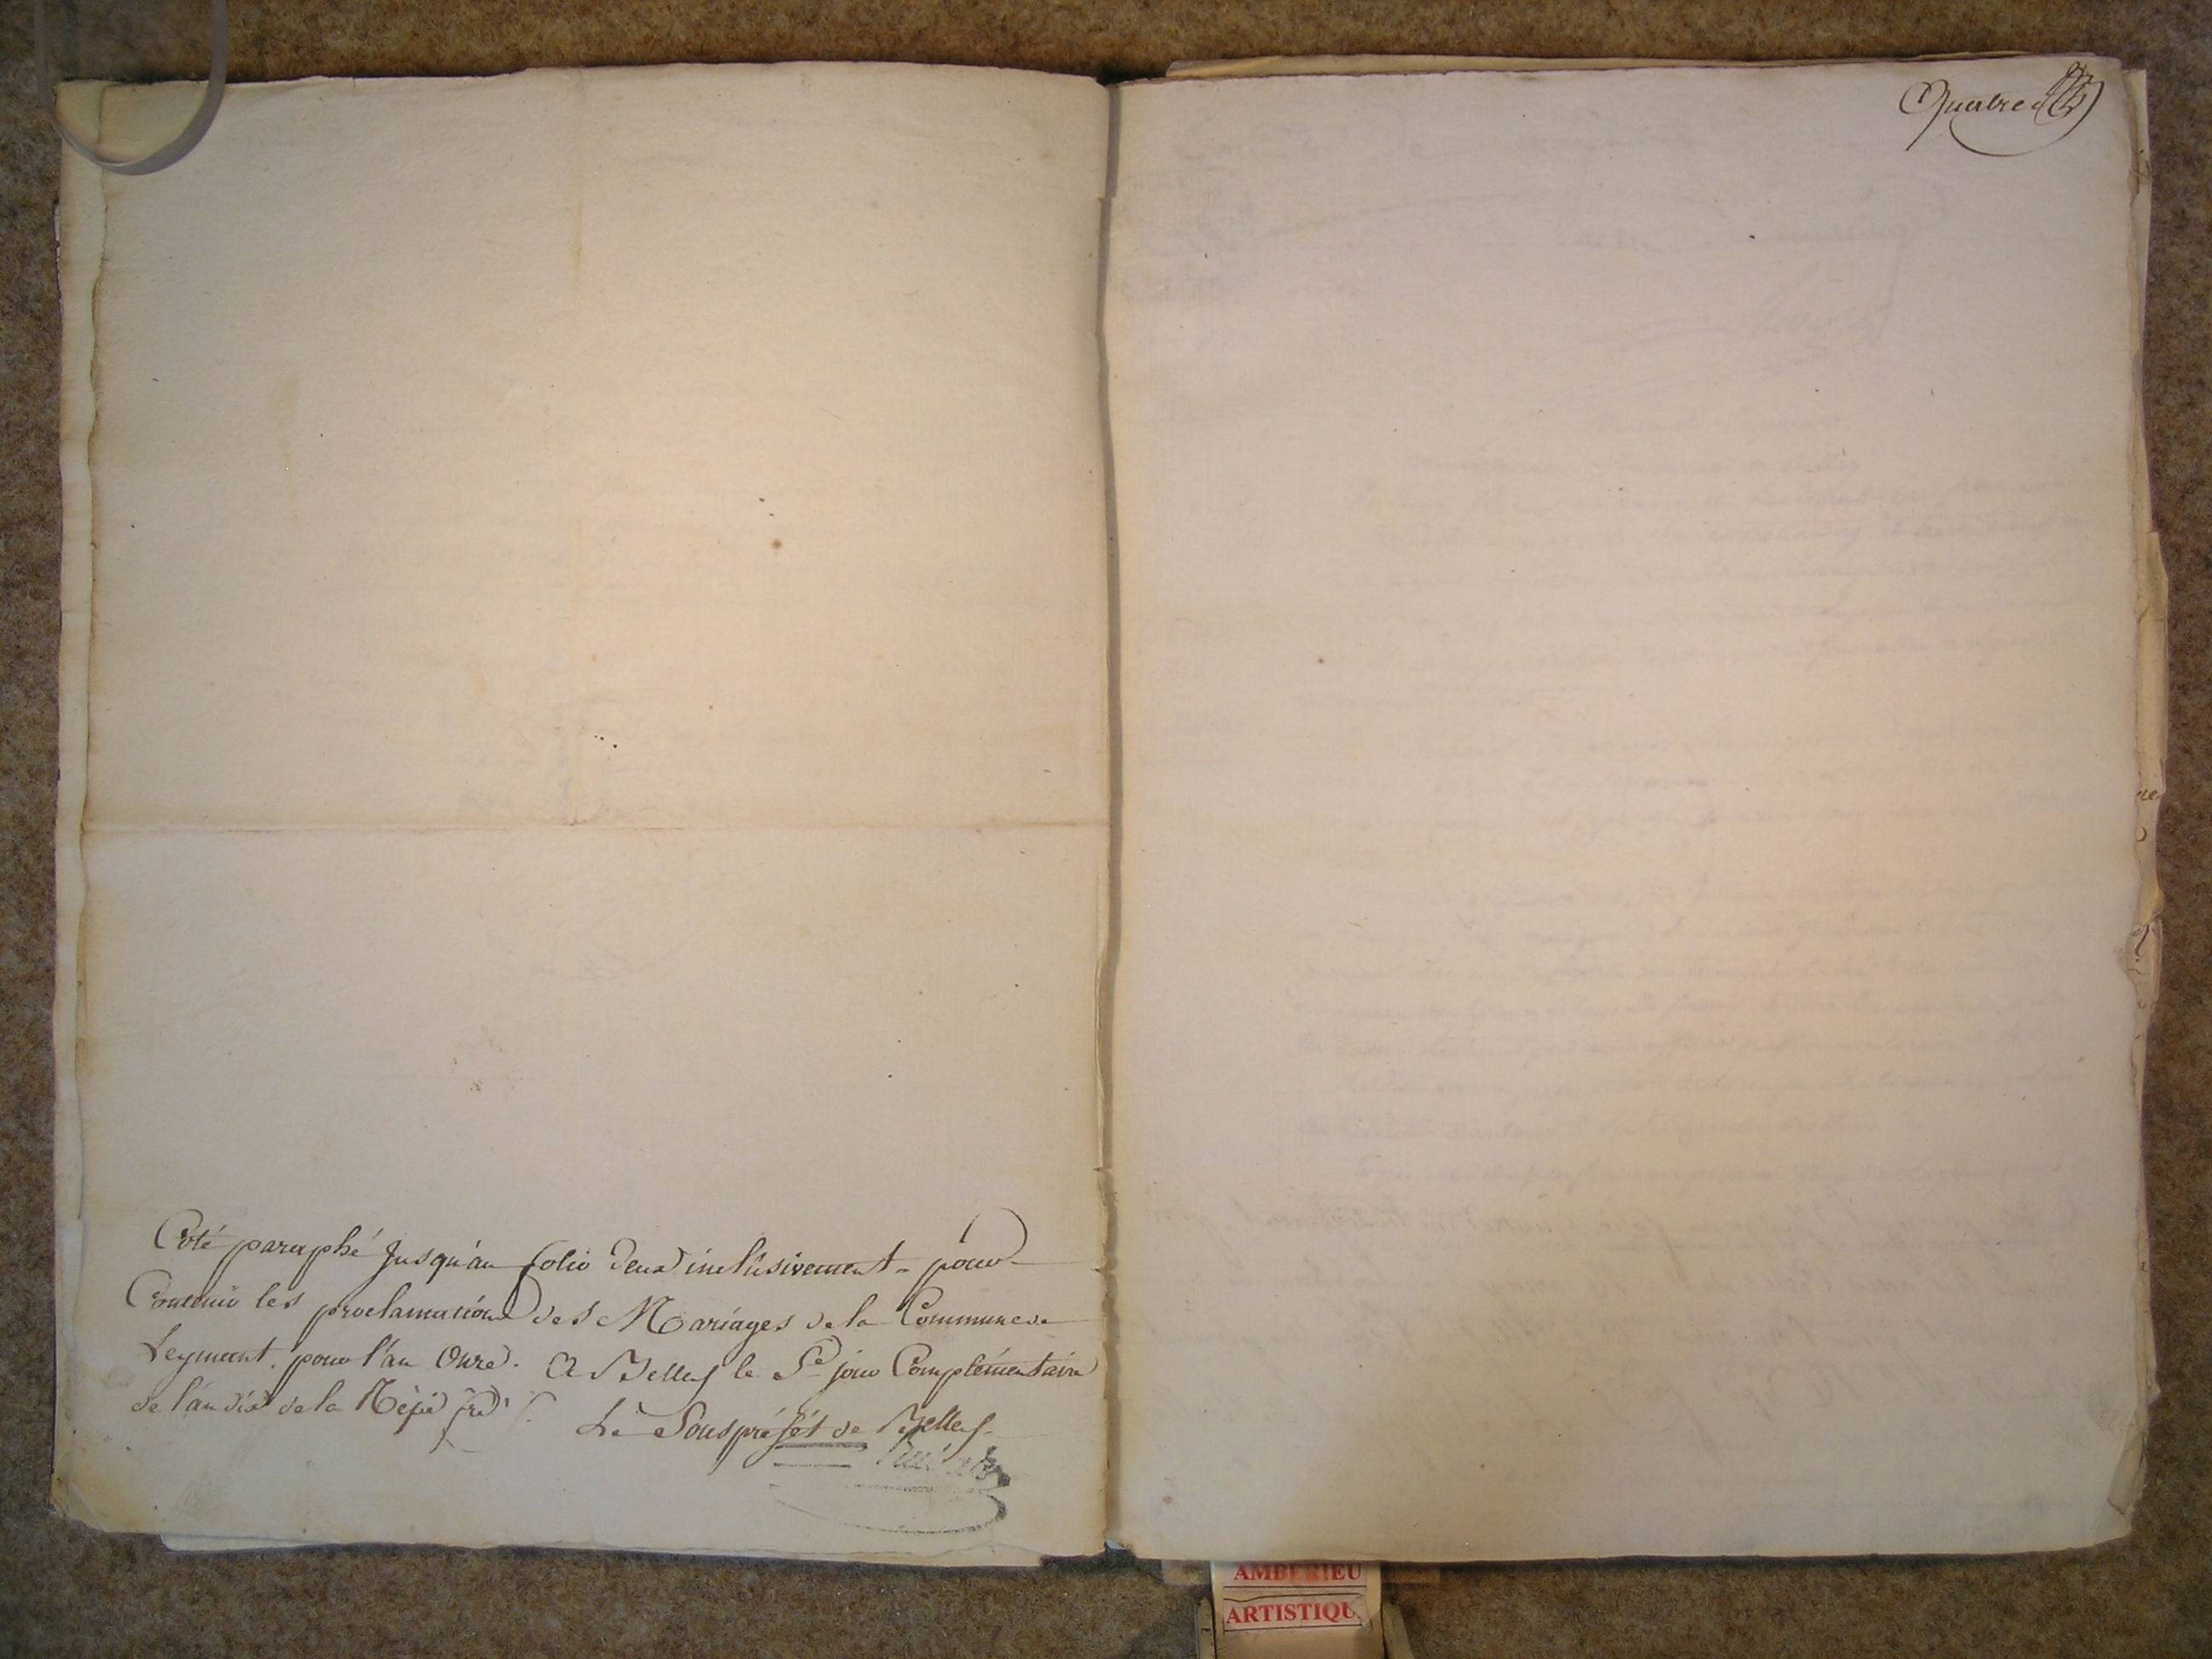 Coté paraphé Jusqu'au folio deux inclusivement - pour
Contenir les proclamations des Mariages de la Commune de
Leyment, pour l'an Onze. A Belley le 5e jour Complémentaire
de l'an dix de la Répu fre
Le Sous préfet de Belley
Quatre
AMBERIEU
ARTISTIQU